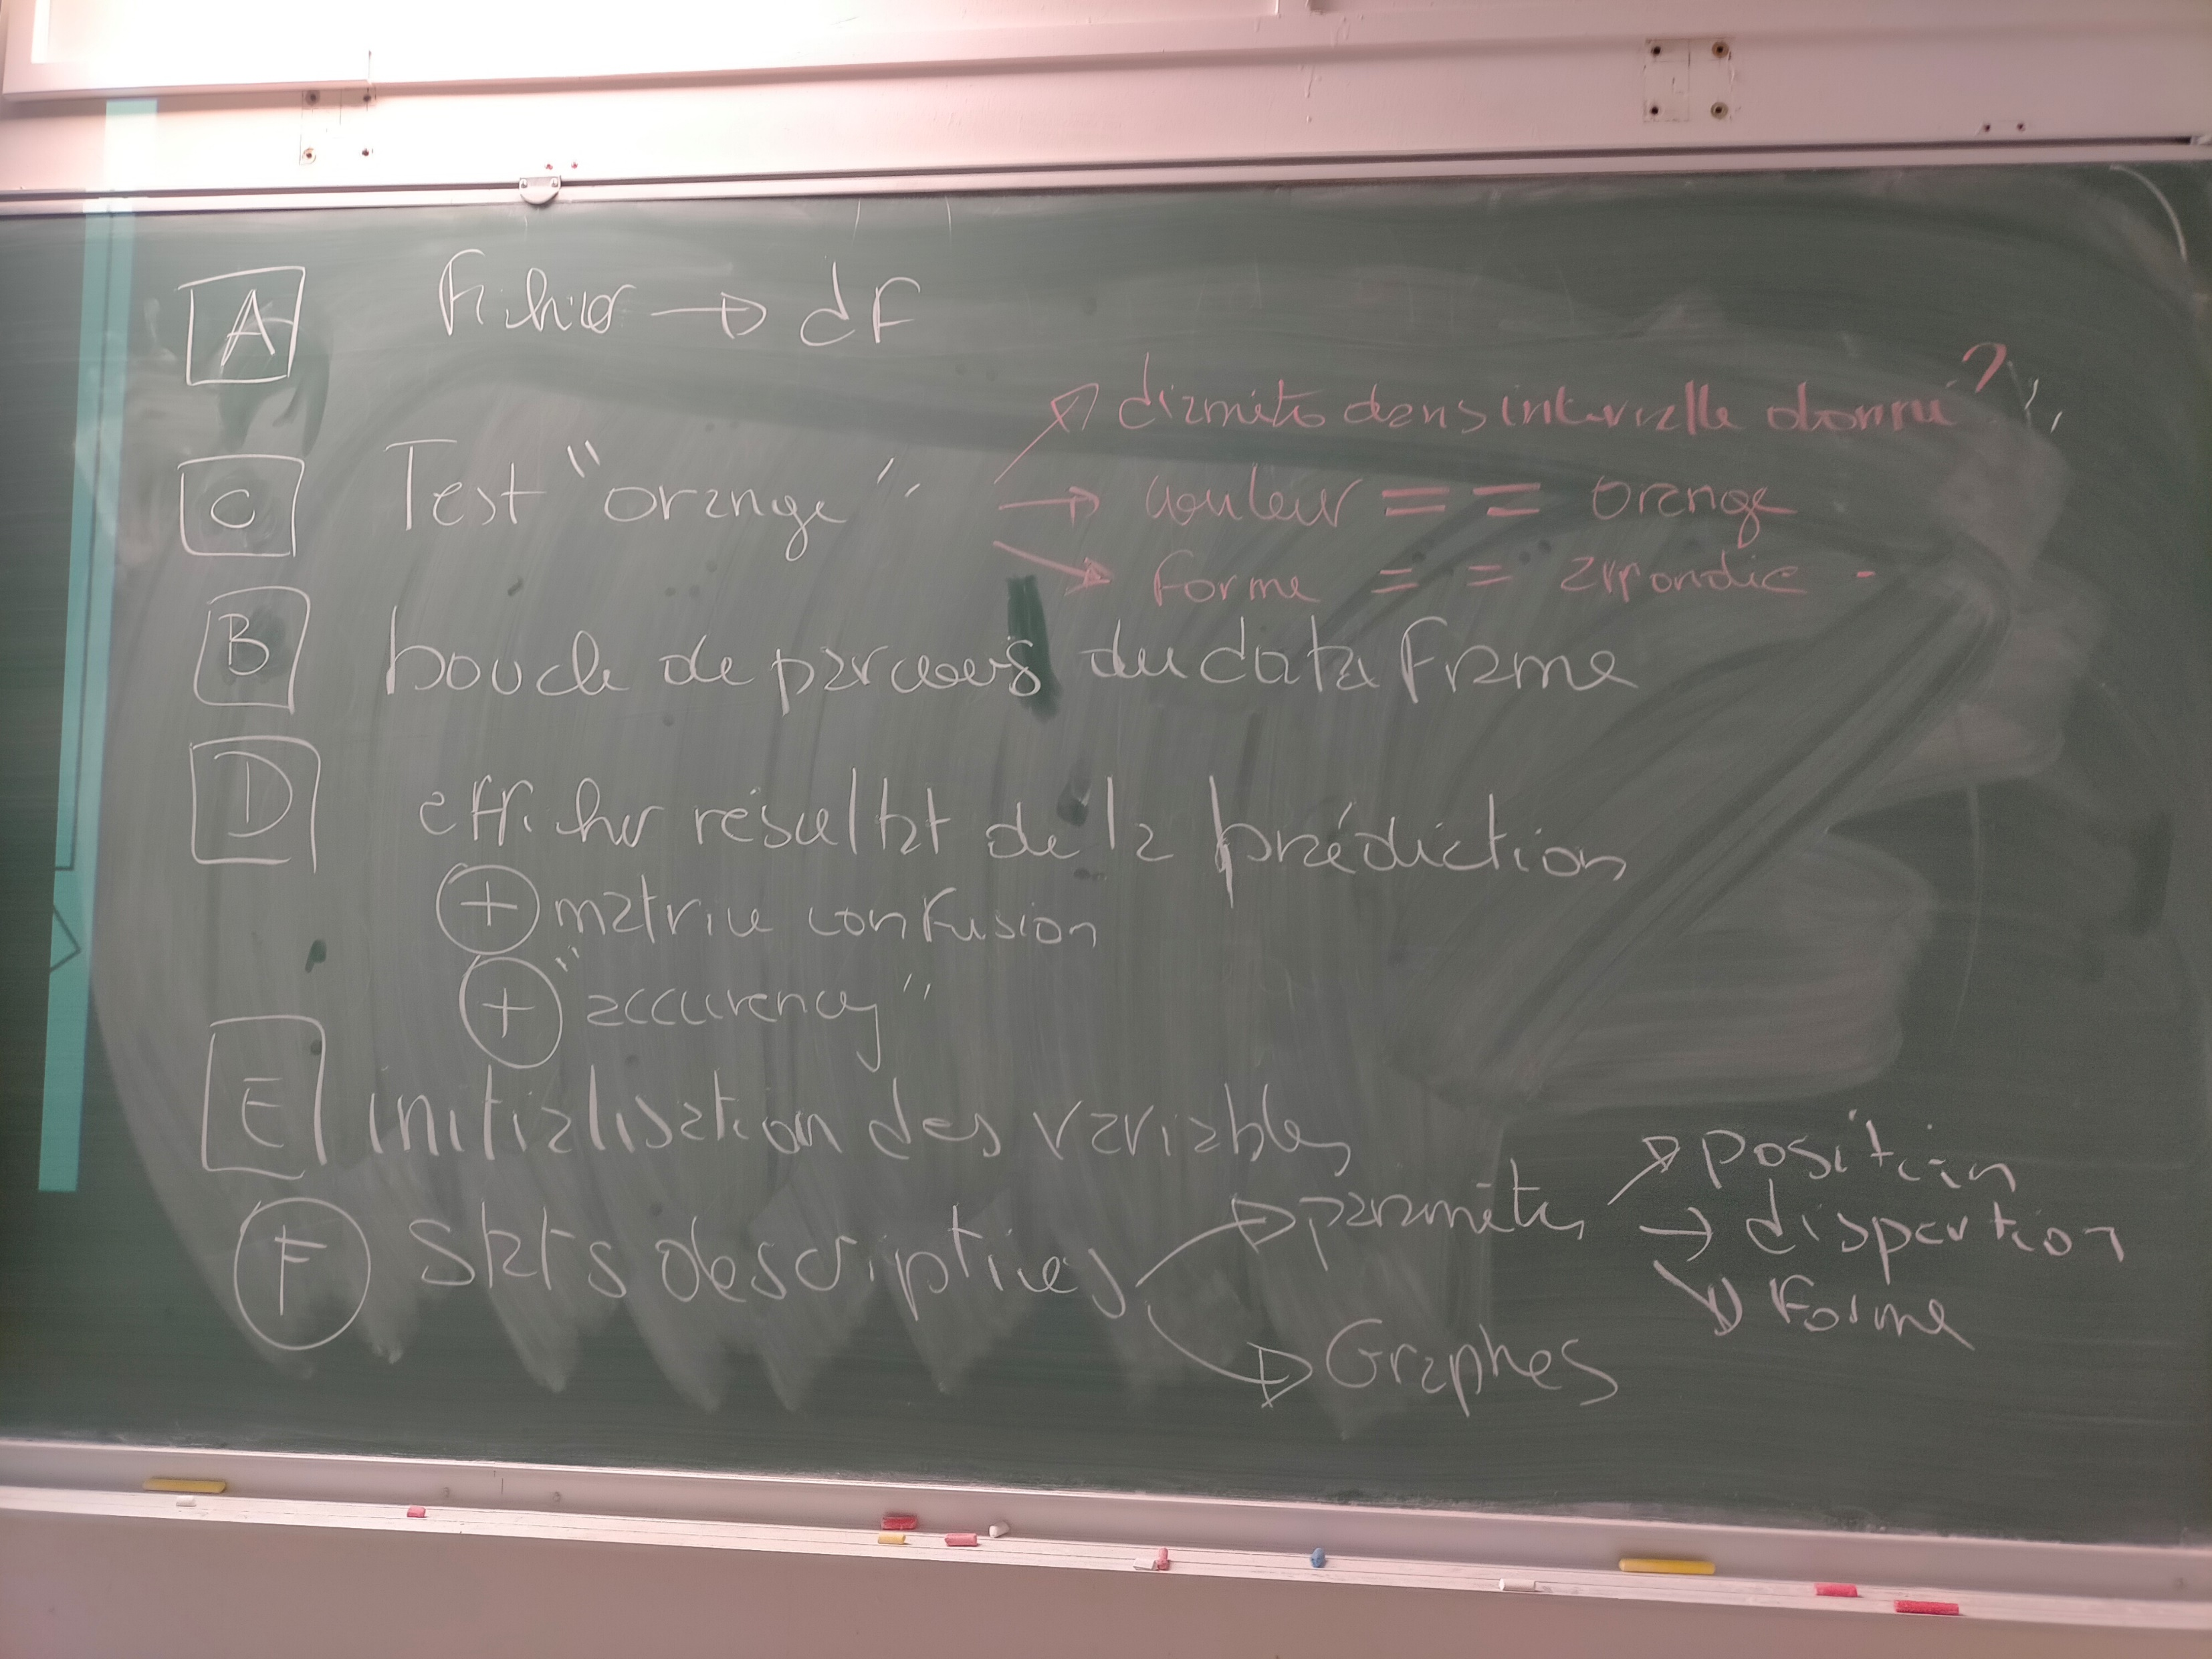 A Fichier → dF
↗ diamètre dans intervalle donné ?
C Test "orange" → couleur == orange
↘ Forme == arrondie
B boucle de parcours du data Frame
D afficher résultat de la prédiction
+ matrice confusion
+ "accurency"
E initialisation des variables
F Stats descriptives → paramètres ↗ position
→ dispertion
↘ Forme
→ Graphes